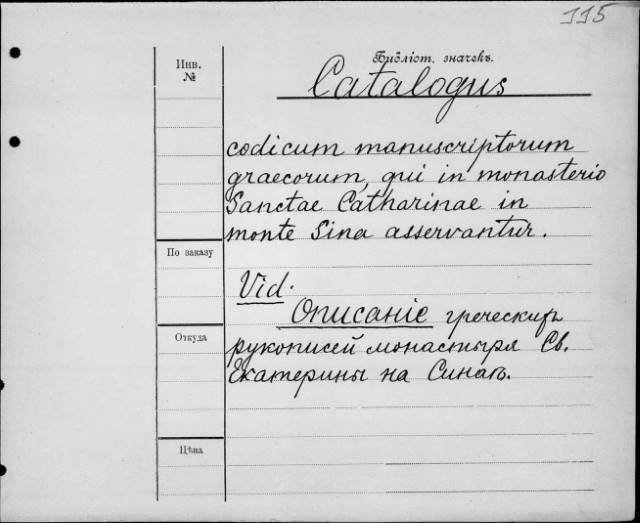 115
Инв.
№
Библіот. значекъ.
Catalogus
codicum manuscriptorum
graecorum, qui in monasterio
Sanctae Catharinae in
monte Sina asservantur.
По заказу
Vid.
Описаніе греческихъ
Откуда
рукописей монастыря Св.
Екатерины на Синаѣ.
Цѣна